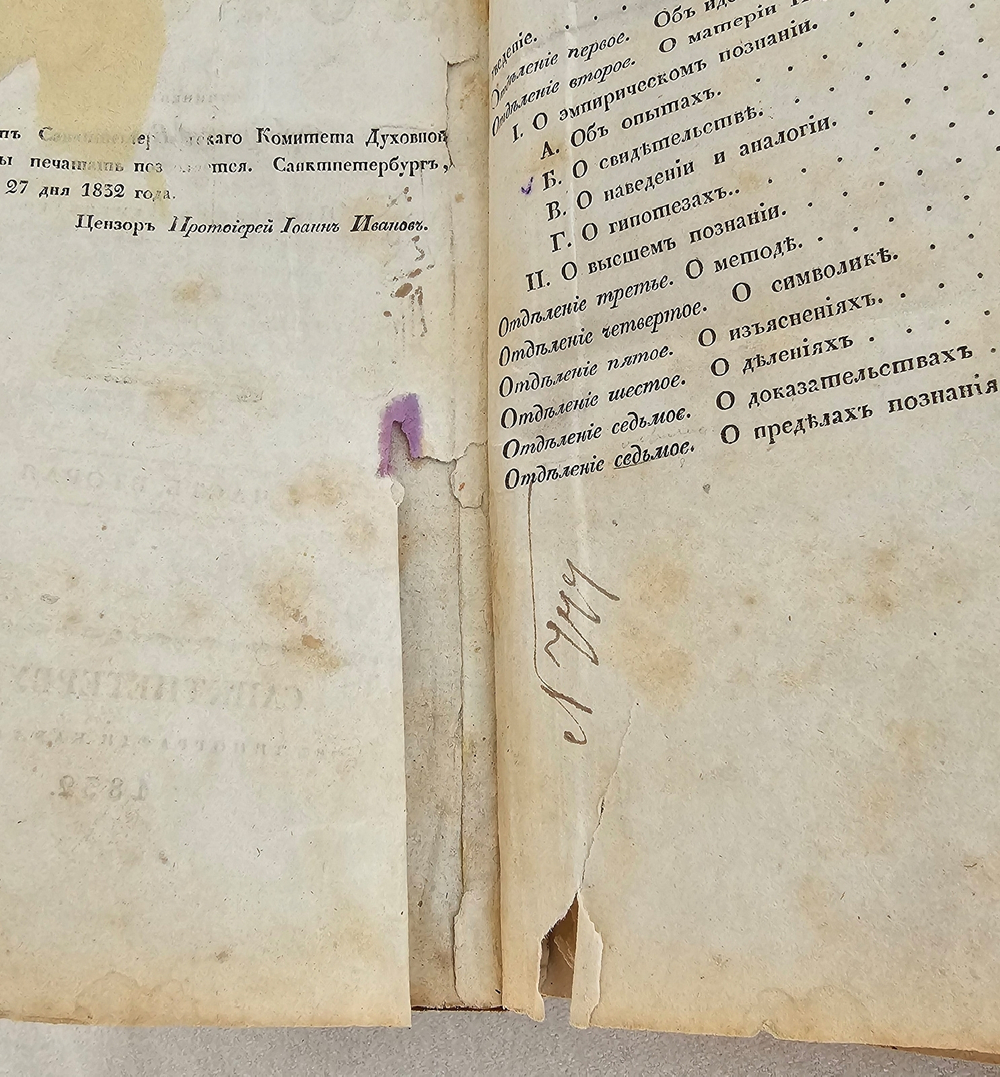 Комитета Духовной
ы печатать поз ется. Санктпетербургъ,
27 дня 1832 года.
Цензоръ Протоіерей Іоаннъ Ивановъ.
1832.
Отдѣленіе первое. Объ
Отдѣленіе второе. О матеріи
I. О эмпирическомъ познаніи.
А. Объ опытахъ.
Б. О свидѣтельствѣ.
В. О наведеніи и аналогіи.
Г. О гипотезахъ..
II. О высшемъ познаніи.
Отдѣленіе третье. О методѣ.
Отдѣленіе четвертое. О символикѣ.
Отдѣленіе пятое. О изъясненіяхъ.
Отдѣленіе шестое. О дѣленіяхъ
Отдѣленіе седьмое. О доказательствахъ
Отдѣленіе седьмое. О предѣлахъ познанія